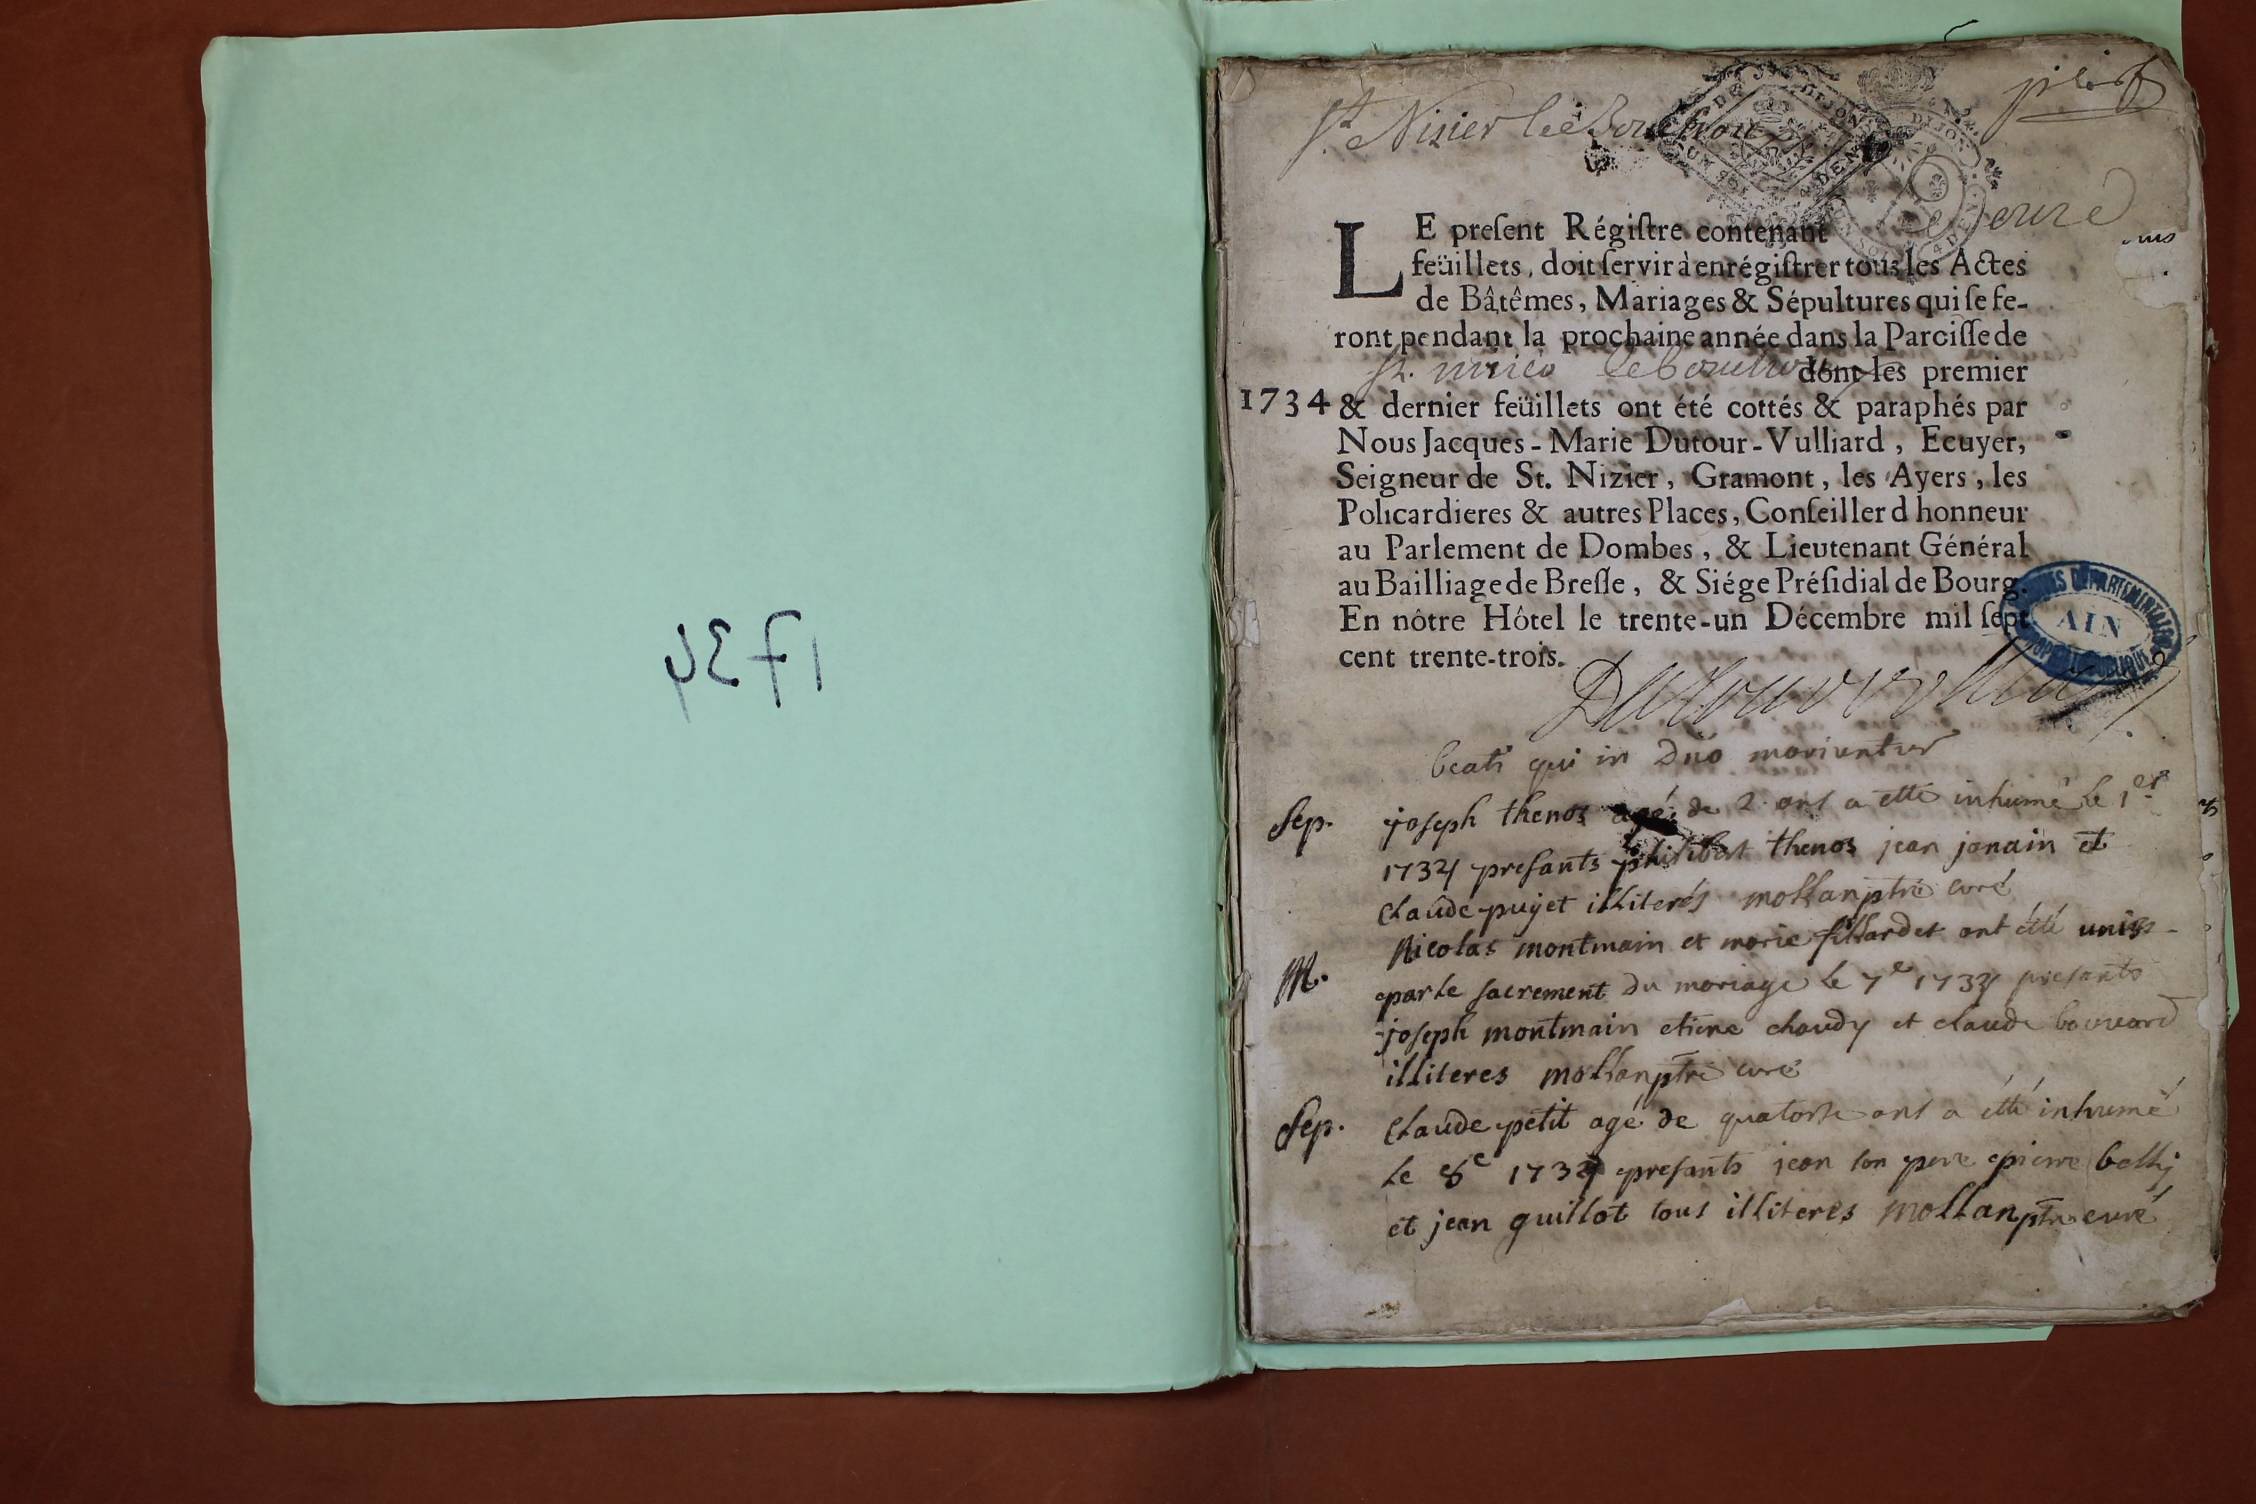 St Nizier le Bouchoux
LE present Régistre contenant
feüillets, doit servir à enrégistrer tous les Actes
de Bâtêmes, Mariages & Sépultures qui se fe-
ront pendant la prochaine année dans la Paroisse de
St. nizier le bouchoux dont les premier
1734 & dernier feüillets ont été cottés & paraphés par
Nous Jacques-Marie Dutour-Vulliard, Ecuyer,
Seigneur de St. Nizier, Gramont, les Ayers, les
Policardieres & autres Places, Conseiller d honneur
au Parlement de Dombes, & Lieutenant Général
au Bailliage de Bresse, & Siége Présidial de Bourg.
En nôtre Hôtel le trente-un Décembre mil sept
cent trente-trois.
AIN
beati qui in Dño moriuntur
Sep. joseph thenoz agé de 2 ans a etté inhumé le 1er
1734 presants philibert thenoz jean janain et
claude puget illiterés mollan ptre curé
M. Nicolas montmain et marie fillardet ont étté unis
par le sacrement du mariage le 7e 1734 presants
joseph montmain etiene chaudy et claude bouvard
illiteres mollan ptre curé
Sep. claude petit agé de quatorse ans a étté inhumé
le 8e 1734 presants jean son pere pierre belly
et jean guillot tous illiterés mollan ptre curé